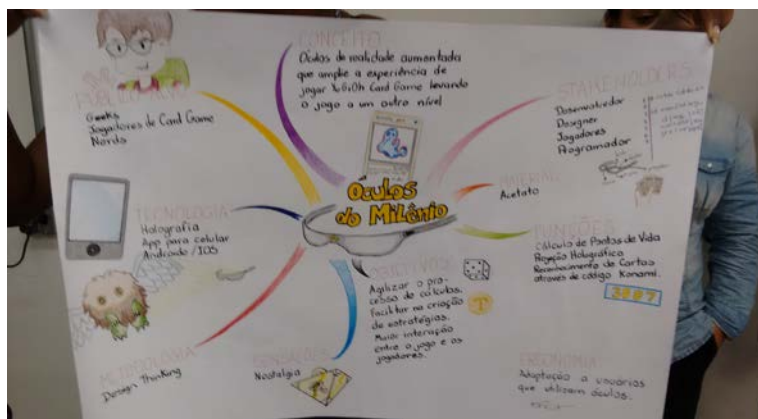 CONCEITO
Óculos de realidade aumentada
que amplie a experiência de
jogar YuGiOh Card Game levando
o jogo a um outro nível
PÚBLICO-ALVO
Geeks
Jogadores de Card Game
Nerds
STAKEHOLDERS
Desenvolvedor
Designer
Jogadores
Programador
Óculos
do Milênio
MATERIAL
Acetato
TECNOLOGIA
Holografia
App para celular
Android / IOS
FUNÇÕES
Cálculo de Pontos de Vida
Projeção Holográfica
Reconhecimento de Cartas
através de código Konami.
3007
OBJETIVOS
Agilizar o pro-
cesso de cálculos.
Facilitar na criação
de estratégias.
Maior interação
entre o jogo e os
jogadores.
METODOLOGIA
Design Thinking
SENSAÇÕES
Nostalgia
ERGONOMIA
Adaptação a usuários
que utilizem óculos.